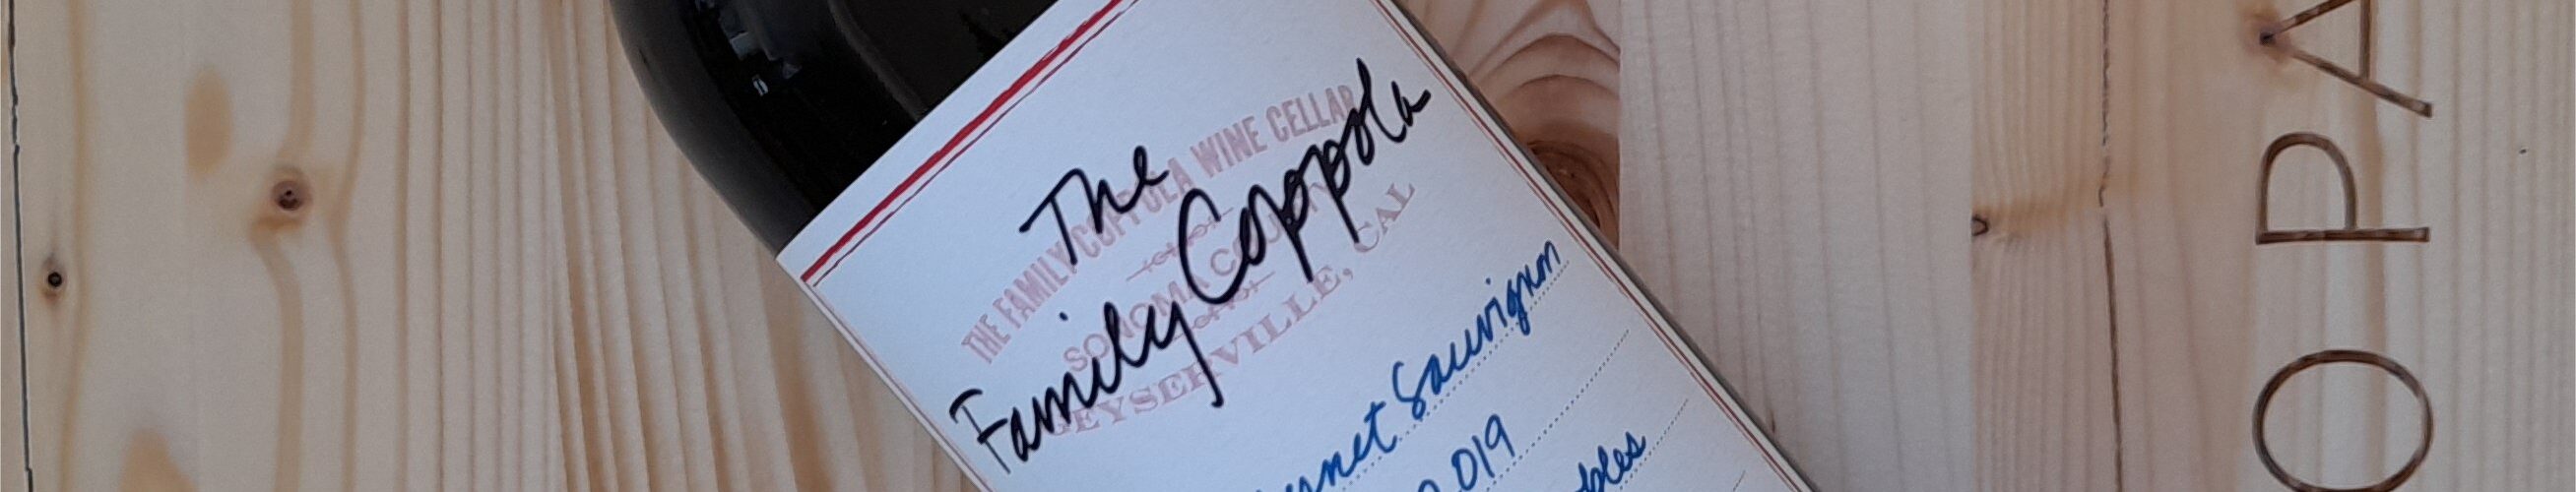 The
Family Coppola
THE FAMILY COPPOLA WINE CELLAR
SONOMA COUNTY
GEYSERVILLE, CAL
Sauvignon
O PA